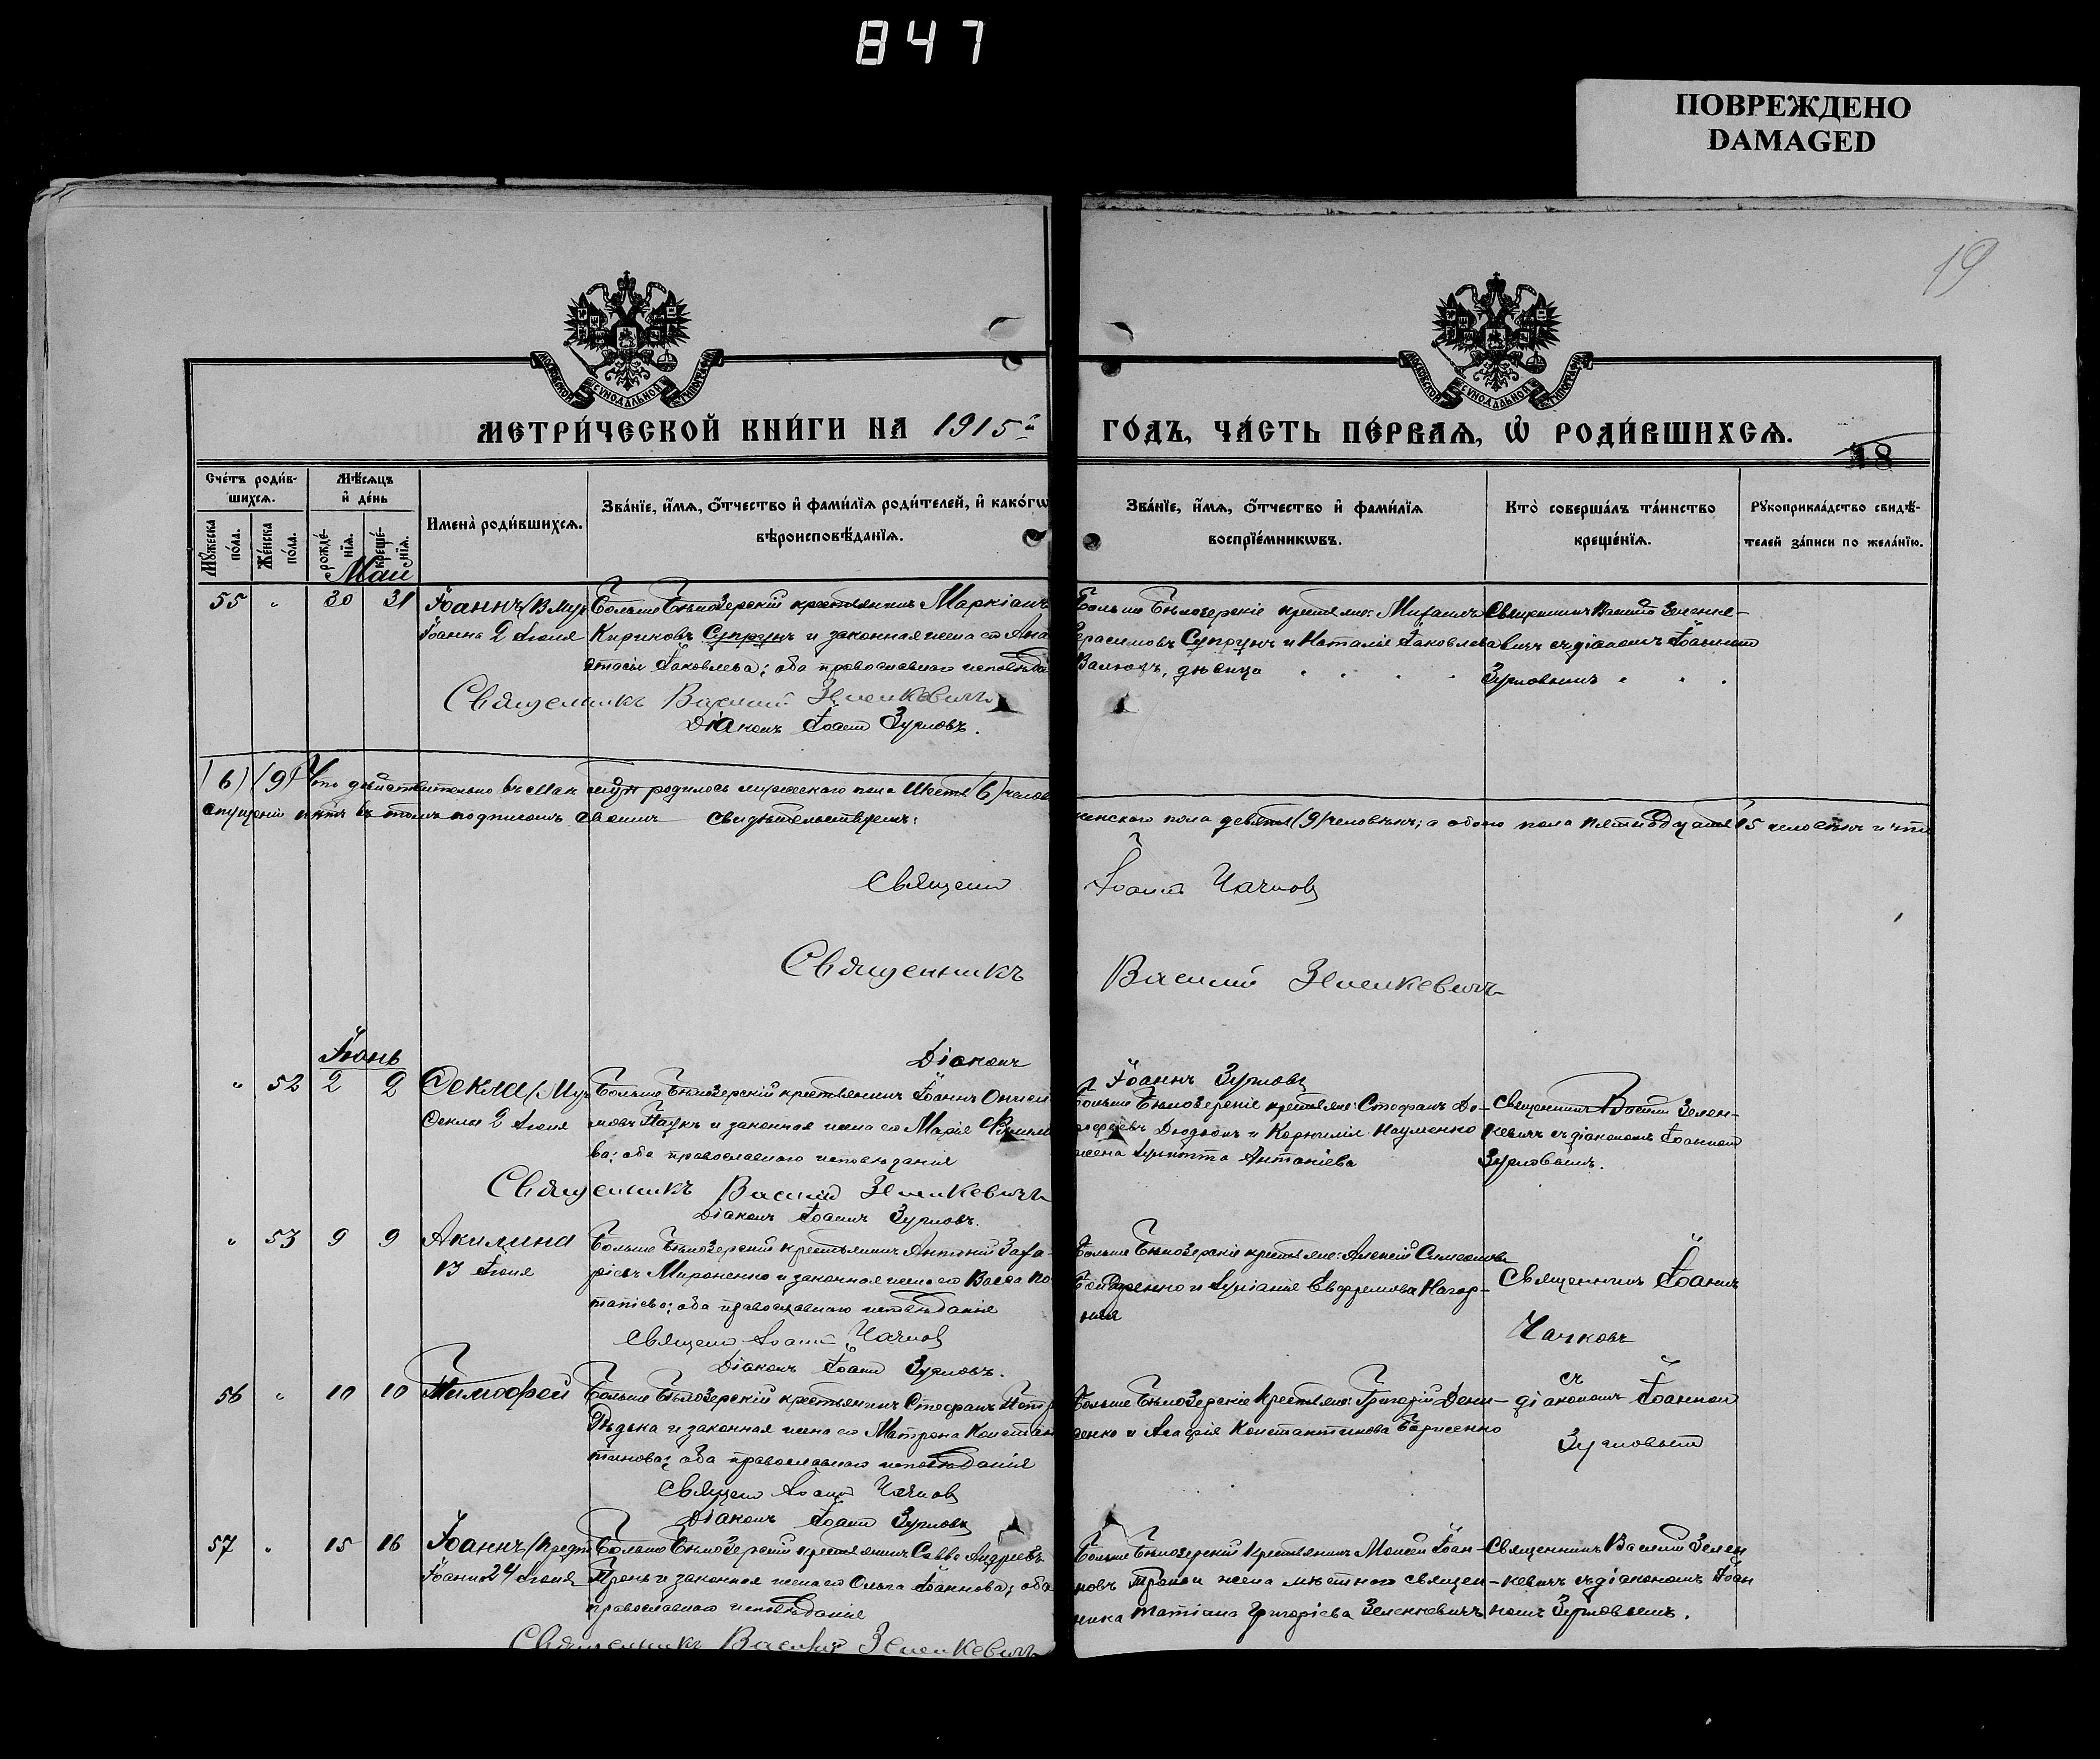 847
ПОВРЕЖДЕНО
DAMAGED
19
МОСКОВСКОЙ СѴНОДАЛЬНОЙ ТИПОГРАФІИ
МОСКОВСКОЙ СѴНОДАЛЬНОЙ ТИПОГРАФІИ
МЕТРИ́ЧЕСКОЙ КНИ́ГИ НА 1915й
ГО́ДЪ, ЧА́СТЬ ПЕ́РВАѦ, Ѡ҆ РОДИ́ВШИХСѦ.
18
Сче́тъ роди́в-
шихсѧ.
Мѣ́сѧцъ
и҆ де́нь
Мꙋ́жеска по́ла.
Же́нска по́ла.
рожде́-нїѧ.
креще́-нїѧ.
Имена̀ роди́вшихсѧ.
Зва́нїе, и҆́мѧ, ѻ҆́тчество и҆ фами́лїѧ роди́телей, и҆ како́гѡ
вѣроисповѣ́данїѧ.
Зва́нїе, и҆́мѧ, ѻ҆́тчество и҆ фами́лїѧ
воспрїе́мникѡвъ.
Кто̀ соверша́лъ та́инство
креще́нїѧ.
Рꙋкоприкла́дство свидѣ́-
телей за́писи по жела́нїю.
Май
55 " 30 31 Іоаннъ Больше Бѣлозерскій крестьянинъ Маркіанъ
Іоанна 2 Іюня Кириковъ Супрунъ и законная жена его Ана
стасія Іаковлева; оба православнаго исповѣда
Больше Бѣлозерскіе крестьяне: Михаилъ
Герасимовъ Супрунъ и Наталія Іаковлева
Валюхъ, дѣвица
Священникъ Василій Зеленке-
вичъ съ діакономъ Іоанном
Зуриловымъ
Священникъ Василій Зеленкевичъ
Діаконъ Іоанн Зуриловъ.
(6) (9) Что дѣйствительно въ Мае родилось мужеского пола шесть (6) челов
женского пола девять (9) человѣкъ; а обоего пола пятнадцать 15 человѣкъ и что
въ томъ подписомъ своимъ свидѣтельствуемъ:
Священ Іоанн Чачков
Священникъ Василій Зеленкевичъ
Діаконъ Іоаннъ Зурилов
Іюнь
" 52 2 2 Ѳекла Больше Бѣлозерскій крестьянинъ Іоаннъ Ониси
Ѳеклы 2 Іюня мовъ Паукъ и законная жена его Марія
ва; оба православнаго исповѣданія
Больше Бѣлозерскіе крестьяне: Стефанъ До-
рофеевъ Дюдюнъ и Корнилія Науменко
жена Антоніева
Священникъ Василій Зелен-
кевичъ съ діакономъ Іоанном
Зуриловымъ.
Священникъ Василій Зеленкевичъ
Діаконъ Іоаннъ Зуриловъ.
" 53 9 9 Акилина Больше Бѣлозерскій крестьянинъ Антоній Заха-
13 Іюня ріевъ Мироненко и законная жена его Васса По
тапіева; оба православнаго исповѣданія
Больше Бѣлозерскіе крестьяне: Алексій Симеонов
и Іуліанія Евфремова Нагор-
ная
Священникъ Іоаннъ
Чачковъ
Священ Іоанн Чачков
Діаконъ Іоанн Зуриловъ.
56 " 10 10 Тимофей Больше Бѣлозерскій крестьянинъ Стефанъ Петр
Рѣдька и законная жена его Матрона Констан
тинова; оба православнаго исповѣданія
Больше Бѣлозерскіе крестьяне: Григорій Дени-
денко и Агафія Константинова Борисенко
съ
діакономъ Іоанном
Зуриловым
Священ Іоанн Чачков
Діаконъ Іоанн Зурилов
57 " 15 16 Іоаннъ Больше Бѣлозерскій крестьянинъ Савва Андреевъ
Іоанна 24 Іюня Тронь и законная жена его Ольга Іоаннова; оба
православнаго исповѣданія
Больше Бѣлозерскій крестьянинъ Моисей Іоан-
новъ Тронь и жена мѣстнаго священ-
ника Татіана Григоріева Зеленкевичъ
Священникъ Василій Зелен
кевичъ съ діакономъ Іоан
номъ Зуриловымъ.
Священникъ Василій Зеленкевичъ